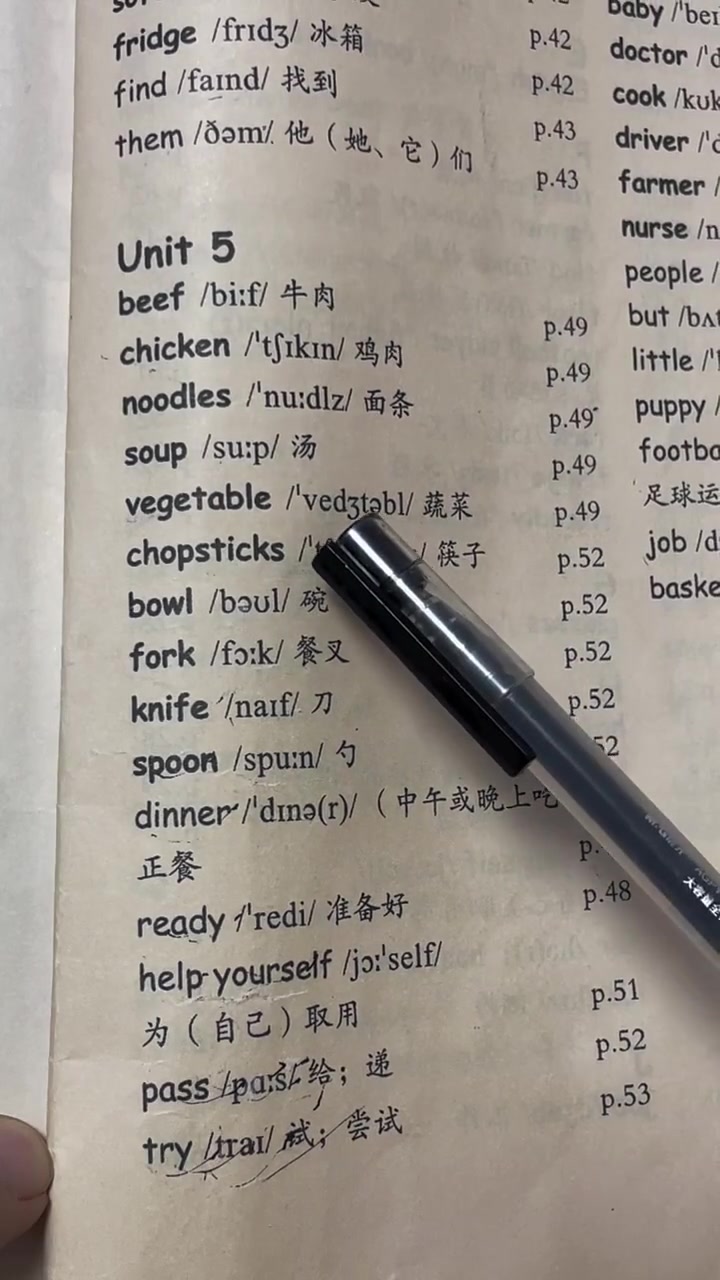 fridge /frɪdʒ/ 冰箱 p.42
find /faɪnd/ 找到 p.42
them /ðəm/ 他（她、它）们 p.43
p.43
Unit 5
beef /biːf/ 牛肉 p.49
chicken /ˈtʃɪkɪn/ 鸡肉 p.49
noodles /ˈnuːdlz/ 面条 p.49
soup /suːp/ 汤 p.49
vegetable /ˈvedʒtəbl/ 蔬菜 p.49
chopsticks 筷子 p.52
bowl /bəʊl/ 碗 p.52
fork /fɔːk/ 餐叉 p.52
knife /naɪf/ 刀 p.52
spoon /spuːn/ 勺 52
dinner /ˈdɪnə(r)/（中午或晚上吃
正餐 p.
ready /ˈredi/ 准备好 p.48
help yourself /jɔːˈself/
为（自己）取用 p.51
pass /pɑːs/ 给；递 p.52
try /traɪ/ 试；尝试 p.53
baby /ˈbeɪ
doctor /ˈd
cook /kʊk
driver /ˈd
farmer /
nurse /n
people /
but /bʌt
little /ˈl
puppy /
footba
足球运
job /d
baske